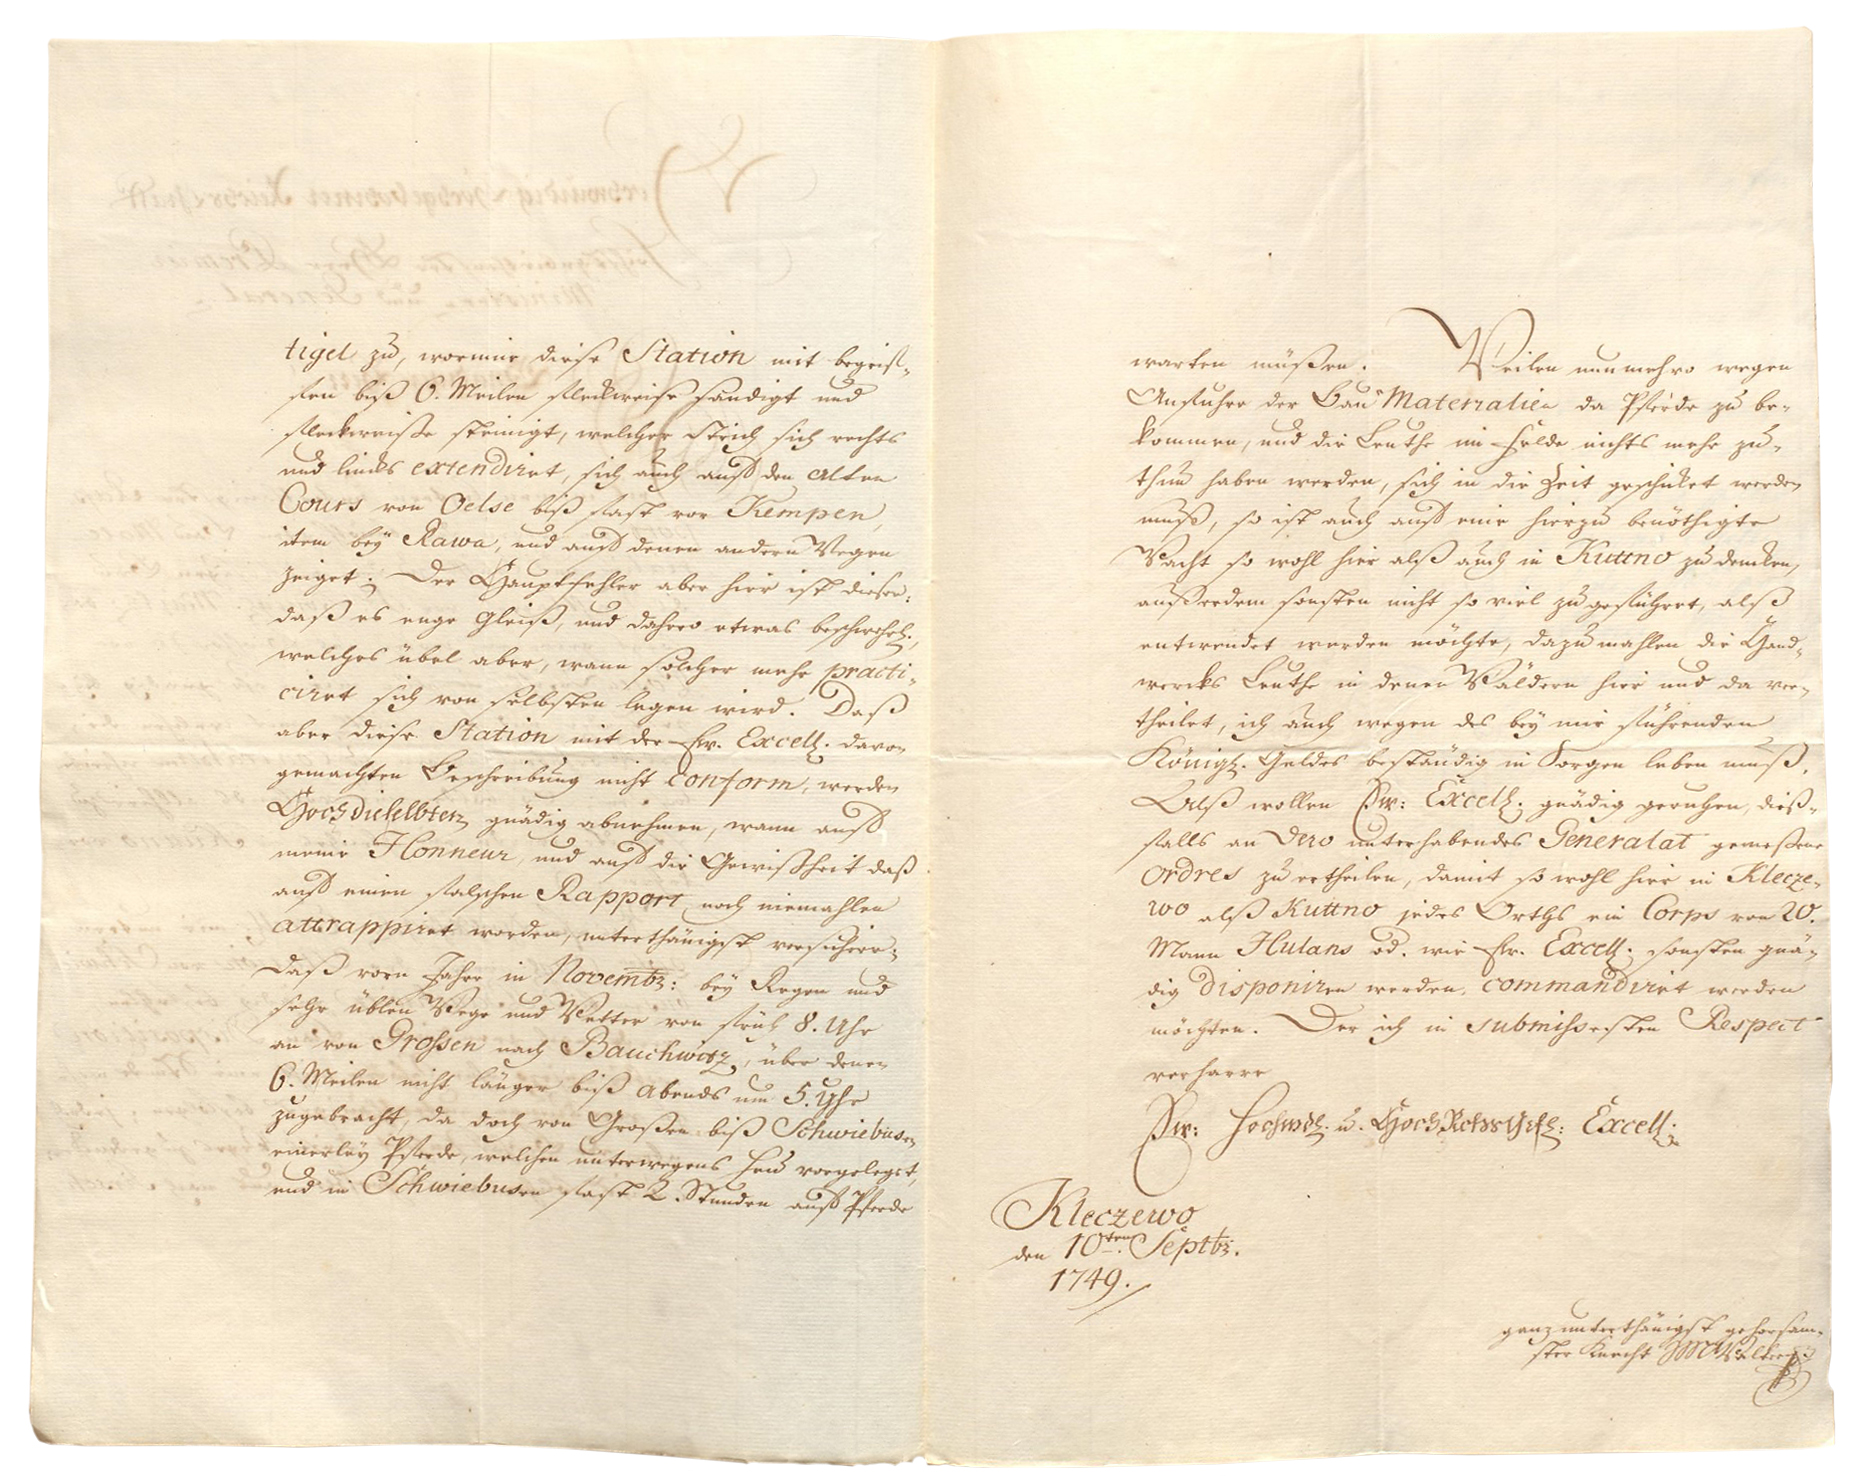 tiget zu, worinnen diese Station mit begrif-
fen biß 6. Meilen fleckweise sandigt und
fleckweiße steinigt, welcher Strich sich rechts
und lincks extendiret, sich auch auf den alten
Cours von Oelse biß fast vor Kempen,
item bey Rawa, und auf denen andern Wegen
zeiget. Der Hauptfehler aber hier ist dieser:
daß es enge Gleiß, und dahero etwas beschwehrl.,
welches übel aber, wann solcher mehr practi-
ciret sich von selbsten legen wird. Daß
aber diese Station mit der Ew. Excell. davon
gemachten Beschreibung nicht conform, werden
Hochdieselbten gnädig abnehmen, wann auf
meine Honneur, und auf die Gewißheit daß
auf einen falschen Rapport noch niemahlen
attrappiret worden, unterthänigst versichere:
daß vorn Jahre in Novembr: bey Regen und
sehr üblen Wege und Wetter von früh 8. Uhr
an von Großen nach Bauchwitz, über denen
6. Meilen nicht länger biß Abends um 5. Uhr
zugebracht, da doch von Großen biß Schwiebusen
einerley Pferde, welchen unterwegens Heu vorgelegt,
und in Schwiebusen fast 2. Stunden auf Pferde
warten müßen. Weilen nunmehro wegen
Anfuhre der Bau Materialien da Pferde zu be-
kommen, und die Leuthe im Felde nichts mehr zu-
thun haben werden, sich in die Zeit geschicket werden
muß, so ist auch auf eine hierzu benöthigte
Wacht so wohl hier alß auch in Kuttno zu dencken,
außerdem sonsten nicht so viel zugeführet, alß
entwendet werden möchte, dazumahlen die Hand-
wercks Leuthe in denen Wäldern hier und da ver-
theilet, ich auch wegen des bey mir führenden
Königl. Geldes beständig in Sorgen leben muß.
Alß wollen Ew: Excell. gnädig geruhen, dieß-
falls an Dero unterhabendes Generalat gemeßene
Ordres zu ertheilen, damit so wohl hier in Klecze-
wo alß Kuttno jedes Orths ein Corps von 20.
Mann Hulans od. wie Ew. Excell. sonsten gnä-
dig disponiren werden, commandiret werden
möchten. Der ich in submissesten Respect
verharre
Ew: Hochwohl. u. Hoch Excell.
Kleczewo
den 10ten. Septbr.
1749.
ganz unterthänigst gehorsam-
ster Knecht